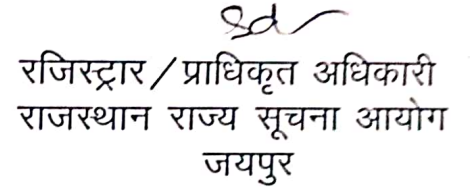 Sd
रजिस्ट्रार/प्राधिकृत अधिकारी
राजस्थान राज्य सूचना आयोग
जयपुर